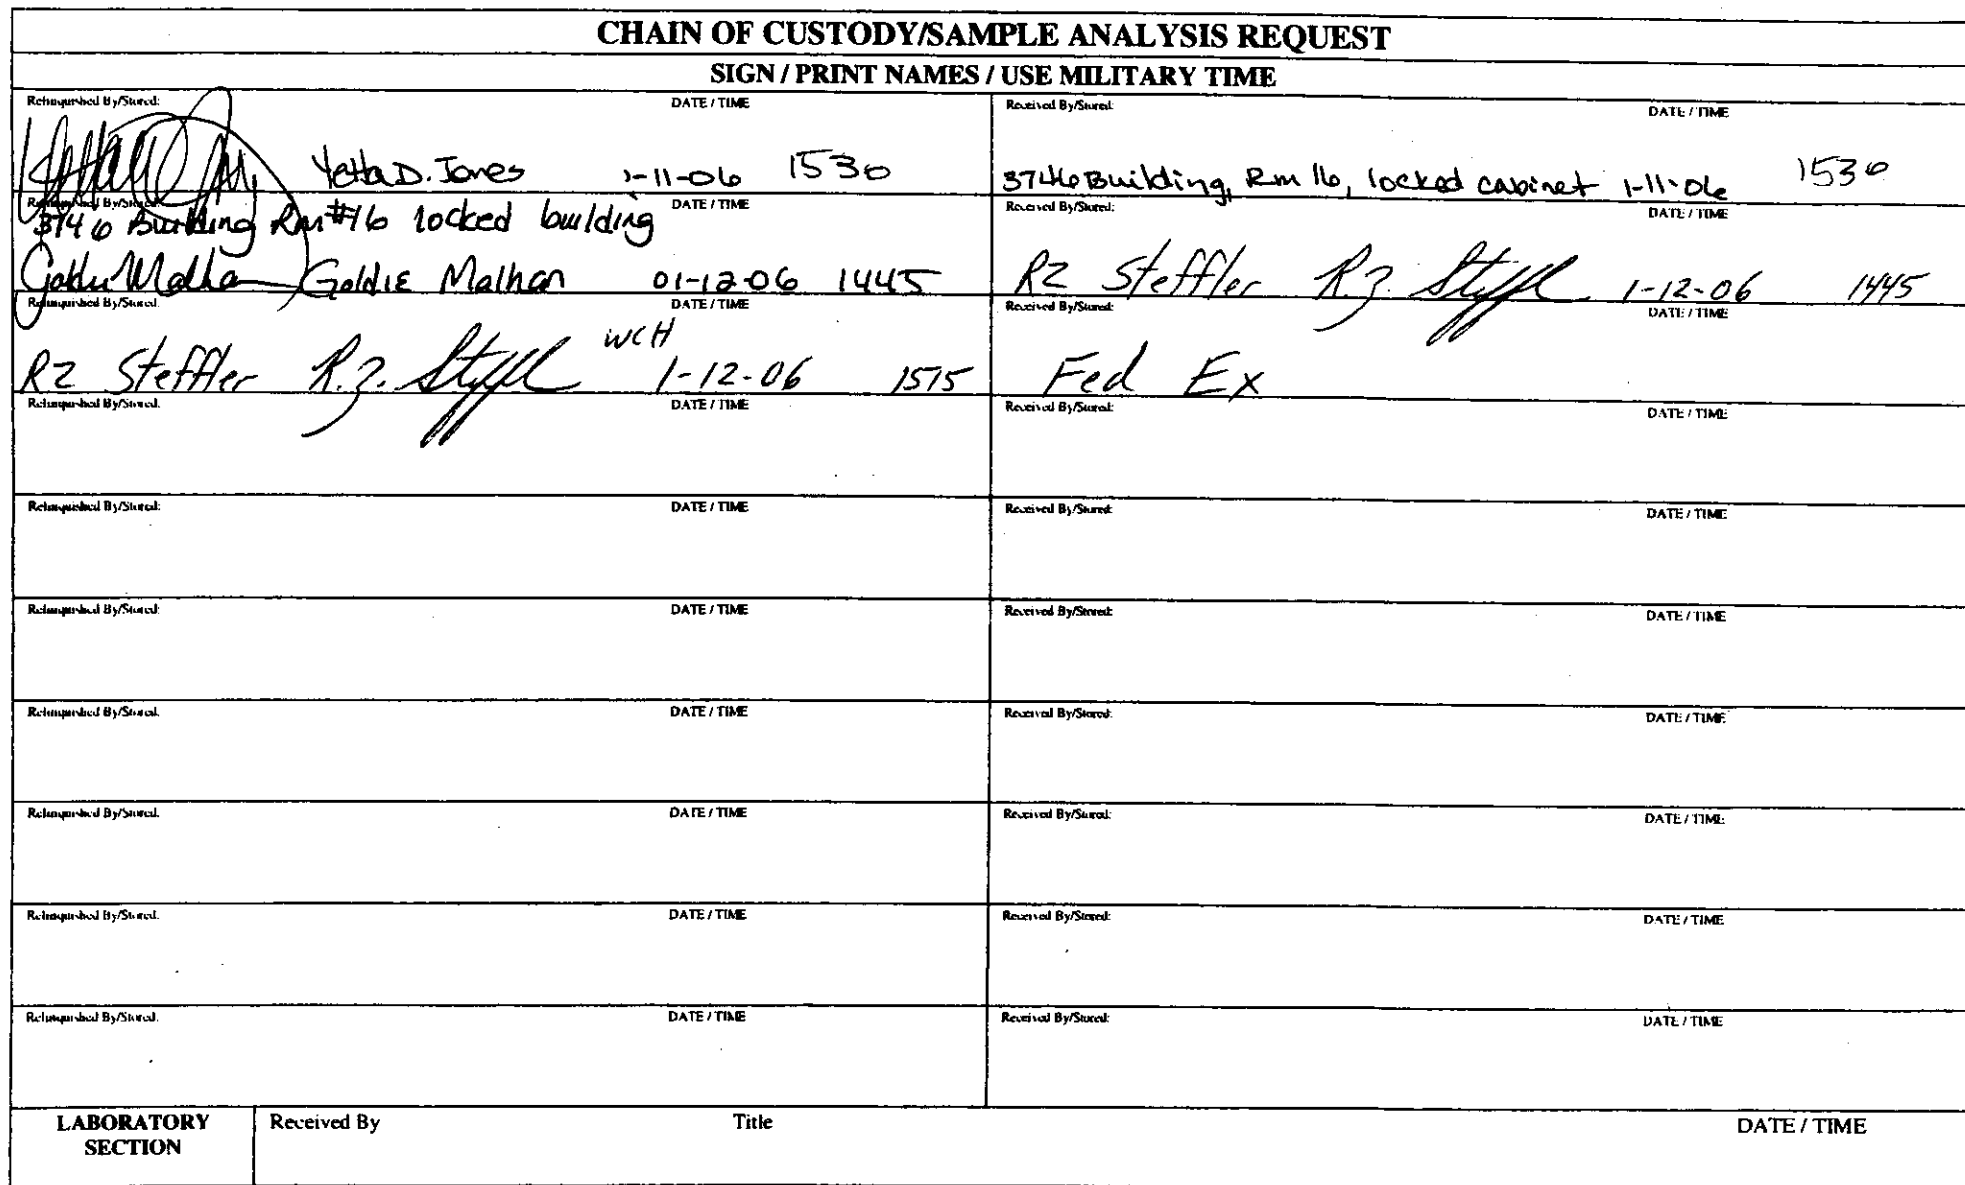 CHAIN OF CUSTODY/SAMPLE ANALYSIS REQUEST
SIGN / PRINT NAMES / USE MILITARY TIME
Relinquished By/Stored: DATE / TIME Received By/Stored: DATE / TIME
Yetta D. Jones 1-11-06 1530 3746 Building, Rm 16, locked cabinet 1-11-06 1530
Relinquished By/Stored: DATE / TIME Received By/Stored: DATE / TIME
3746 Building Rm #16 locked building
Goldie Malhan 01-12-06 1445 RZ Steffler R.Z. Steffler 1-12-06 1445
Relinquished By/Stored: DATE / TIME Received By/Stored: DATE / TIME
WCH
RZ Steffler R.Z. Steffler 1-12-06 1515 Fed Ex
Relinquished By/Stored: DATE / TIME Received By/Stored: DATE / TIME
Relinquished By/Stored: DATE / TIME Received By/Stored: DATE / TIME
Relinquished By/Stored: DATE / TIME Received By/Stored: DATE / TIME
Relinquished By/Stored: DATE / TIME Received By/Stored: DATE / TIME
Relinquished By/Stored: DATE / TIME Received By/Stored: DATE / TIME
Relinquished By/Stored: DATE / TIME Received By/Stored: DATE / TIME
Relinquished By/Stored: DATE / TIME Received By/Stored: DATE / TIME
LABORATORY SECTION Received By Title DATE / TIME